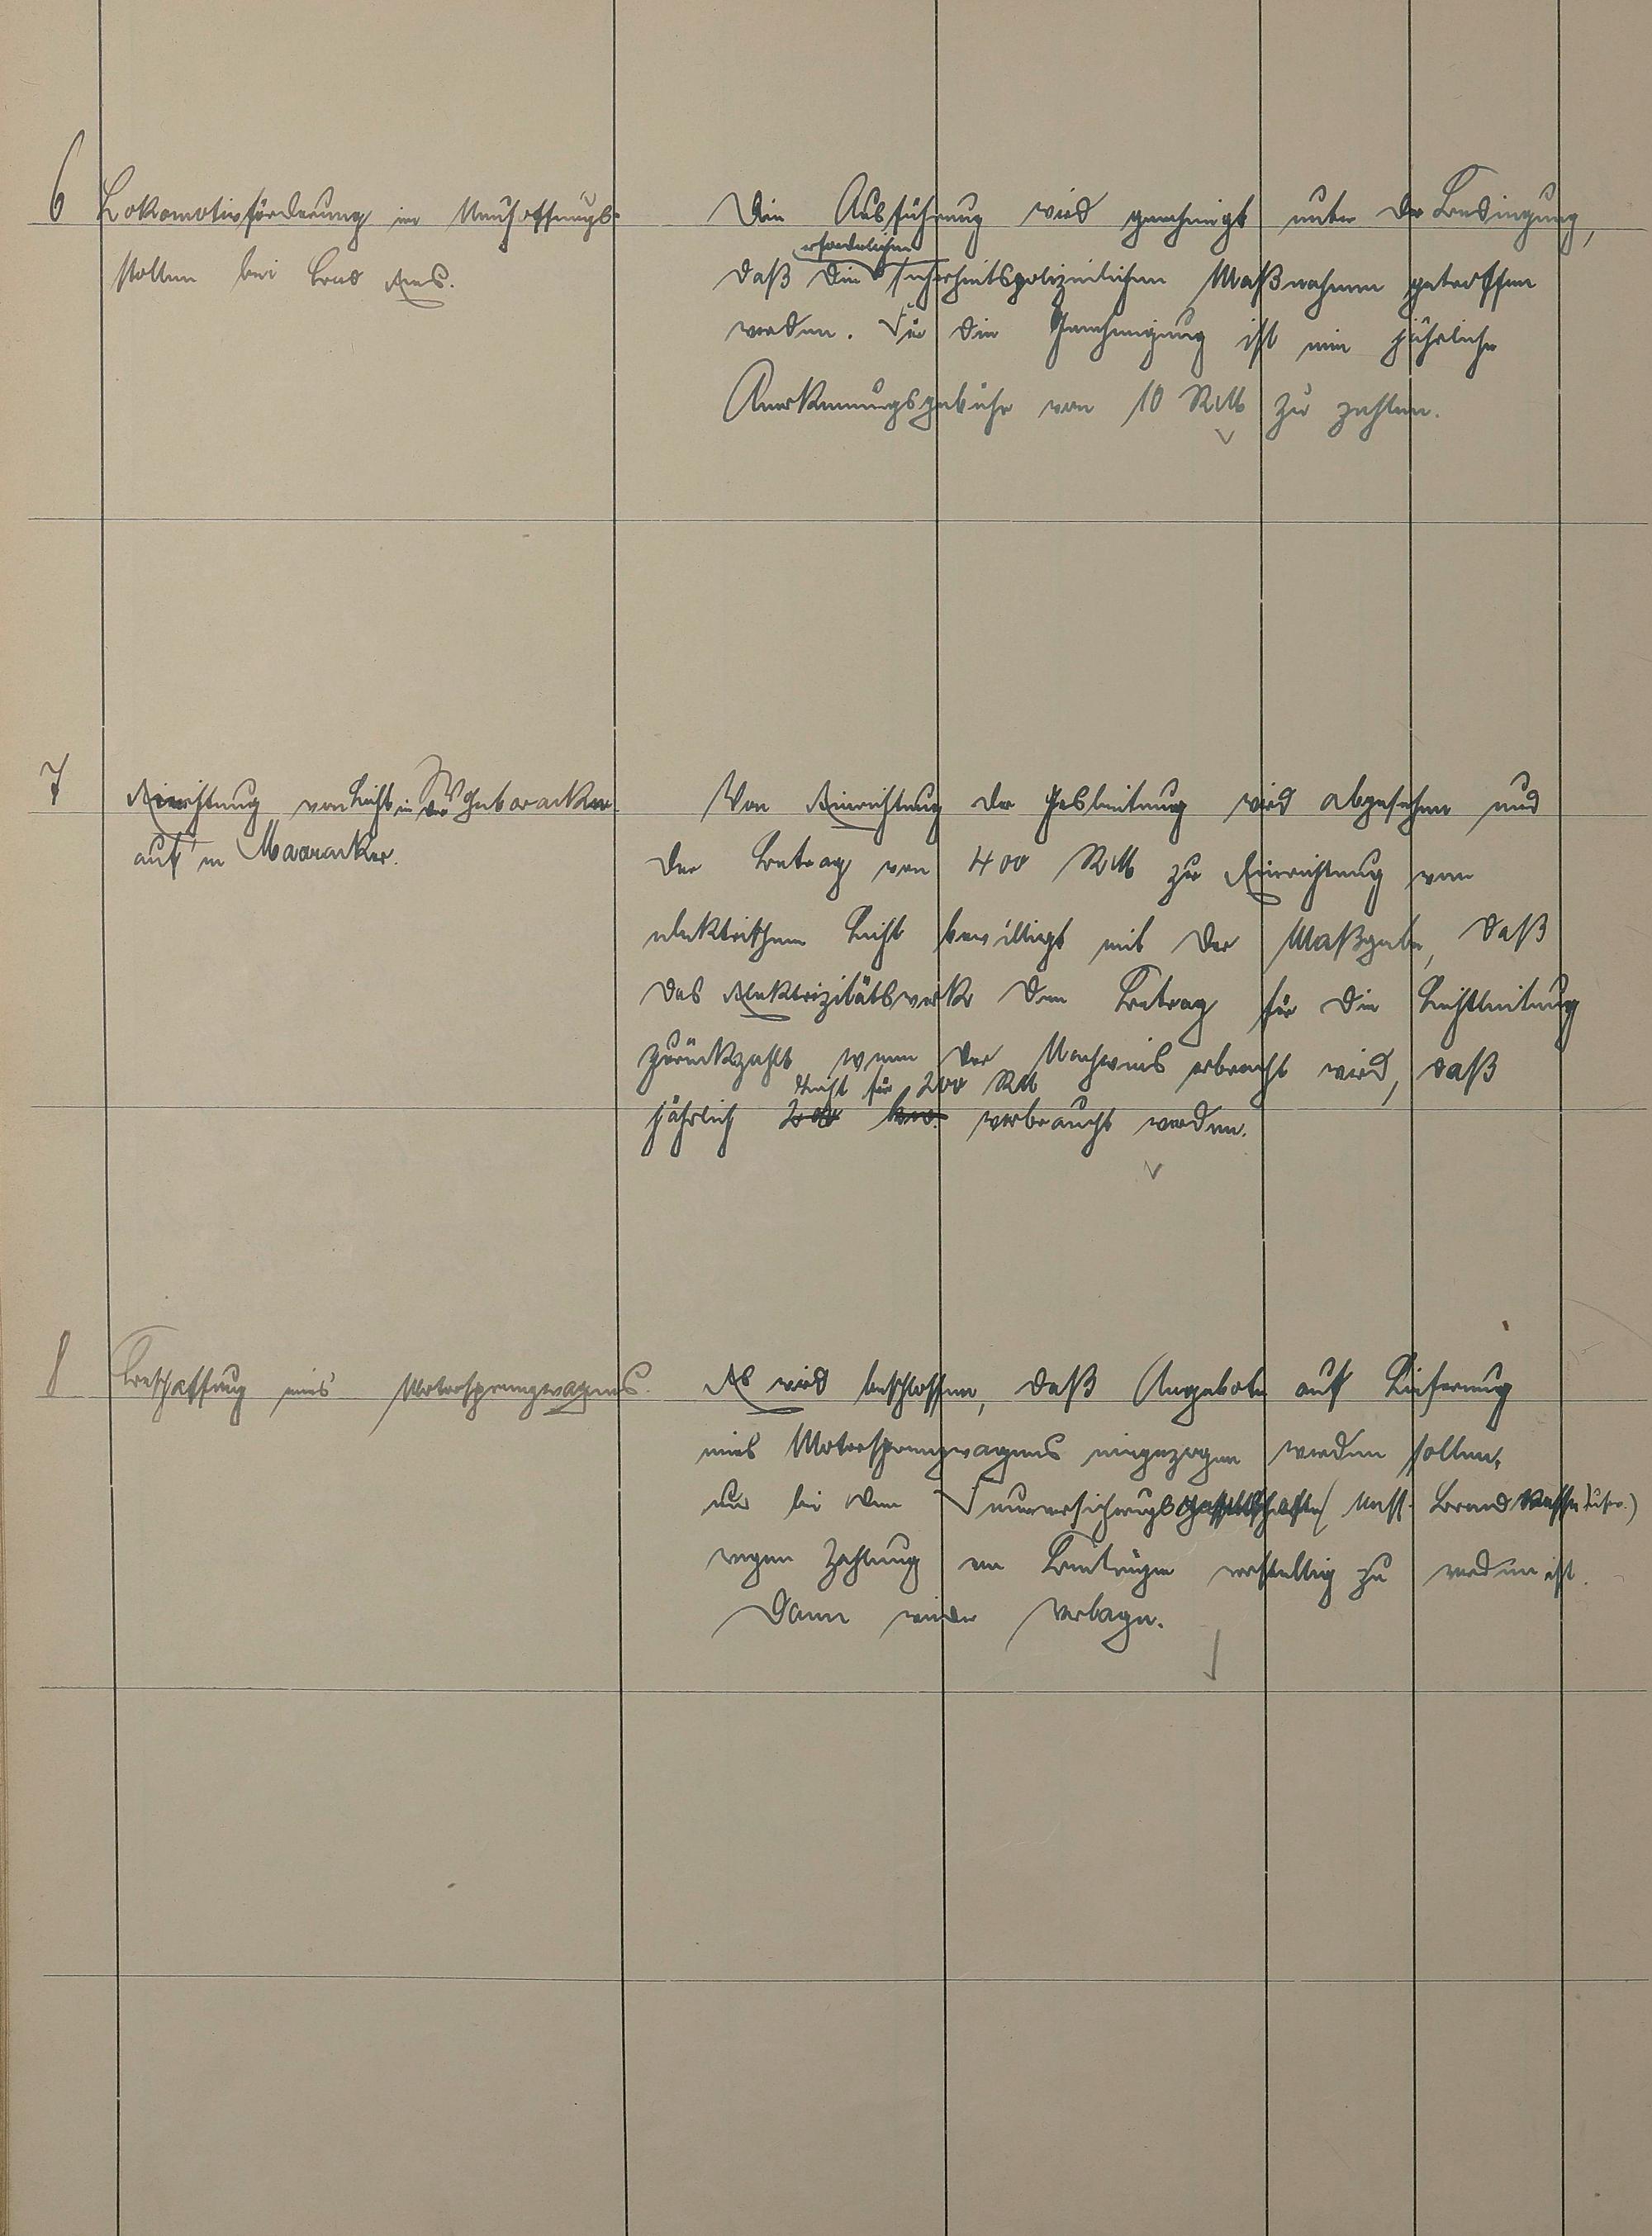 6 Lokomotivförderung im Neuhoffnungs-
stollen bei Bad Ems.
Die Ausführung wird genehmigt unter der Bedingung,
erforderlichen
daß die sicherheitspolizeilichen Maßnahmen getroffen
werden. Für die Genehmigung ist eine jährliche
Anerkennungsgebühr von 10 RM zu zahlen.
7 Einrichtung von Licht in der Wohnbaracke
auf'm Maaracker.
Von Einrichtung der Gasleitung wird abgesehen und
der Betrag von 400 RM zur Einrichtung von
elektrischem Licht bewilligt mit der Maßgabe, daß
das Elektrizitätswerk den Betrag für die Lichtleitung
zurückzahlt wenn der Nachweis erbracht wird, daß
Licht für 200 RM
jährlich 200 kw. verbraucht werden.
8 Beschaffung eines Motorsprengwagens.
Es wird beschlossen, daß Angebote auf Lieferung
eines Motorsprengwagens eingezogen werden sollen,
und bei den Feuerversicherungsgesellschaften (Nass. Brandkasse usw.)
wegen Zahlung von Beiträgen vorstellig zu werden ist.
Dann wieder Vorlage.